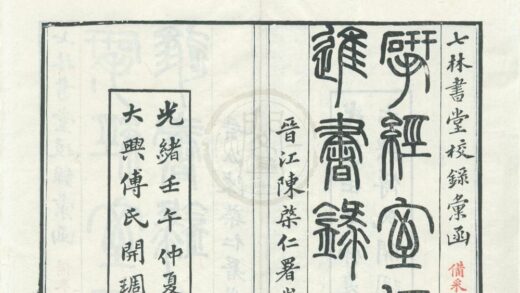 七林書堂校錄彙函
備采
揅經室
進書錄
晉江陳棨仁署
光緒壬午仲夏
大興傅氏開琱